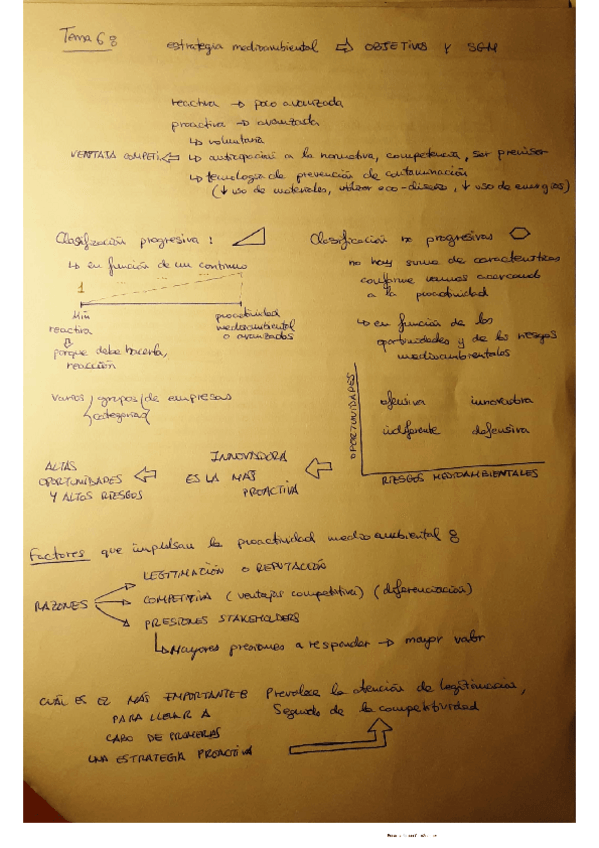 Tema 6:
estrategia medioambiental ⇒ OBJETIVOS Y SGM
reactiva → poco avanzada
proactiva → avanzada
↳ voluntaria
VENTAJA COMPETI. ⇐ ↳ anticipación a la normativa, competencia, ser precursor
↳ tecnología de prevención de contaminación
(↓ uso de materiales, utilizar eco-diseño, ↓ uso de energías)
Clasificación progresiva:
↳ en función de un continuo
1
Min
reactiva
porque debe hacerla,
reacción
proactividad
medioambiental
o avanzados
varios grupos/de empresas
categorías
Clasificación no progresivas
no hay suma de características
conforme vamos acercando
a la proactividad
↳ en función de las
oportunidades y de los riesgos
medioambientales
OPORTUNIDADES
ofensiva innovadora
indiferente defensiva
RIESGOS MEDIOAMBIENTALES
ALTAS
OPORTUNIDADES
Y ALTOS RIESGOS
⇐
INNOVADORA
ES LA MÁS
PROACTIVA
⇐
Factores que impulsan la proactividad medioambiental:
RAZONES
LEGITIMACIÓN O REPUTACIÓN
COMPETITIVA (ventajas competitivas) (diferenciación)
PRESIONES STAKEHOLDERS
↳ Mayores presiones a responder → mayor valor
CUÁL ES EL MÁS IMPORTANTE
PARA LLEVAR A
CABO DE PRIMERAS
UNA ESTRATEGIA PROACTIVA
Prevalece la atención de legitimación,
Seguido de la competitividad